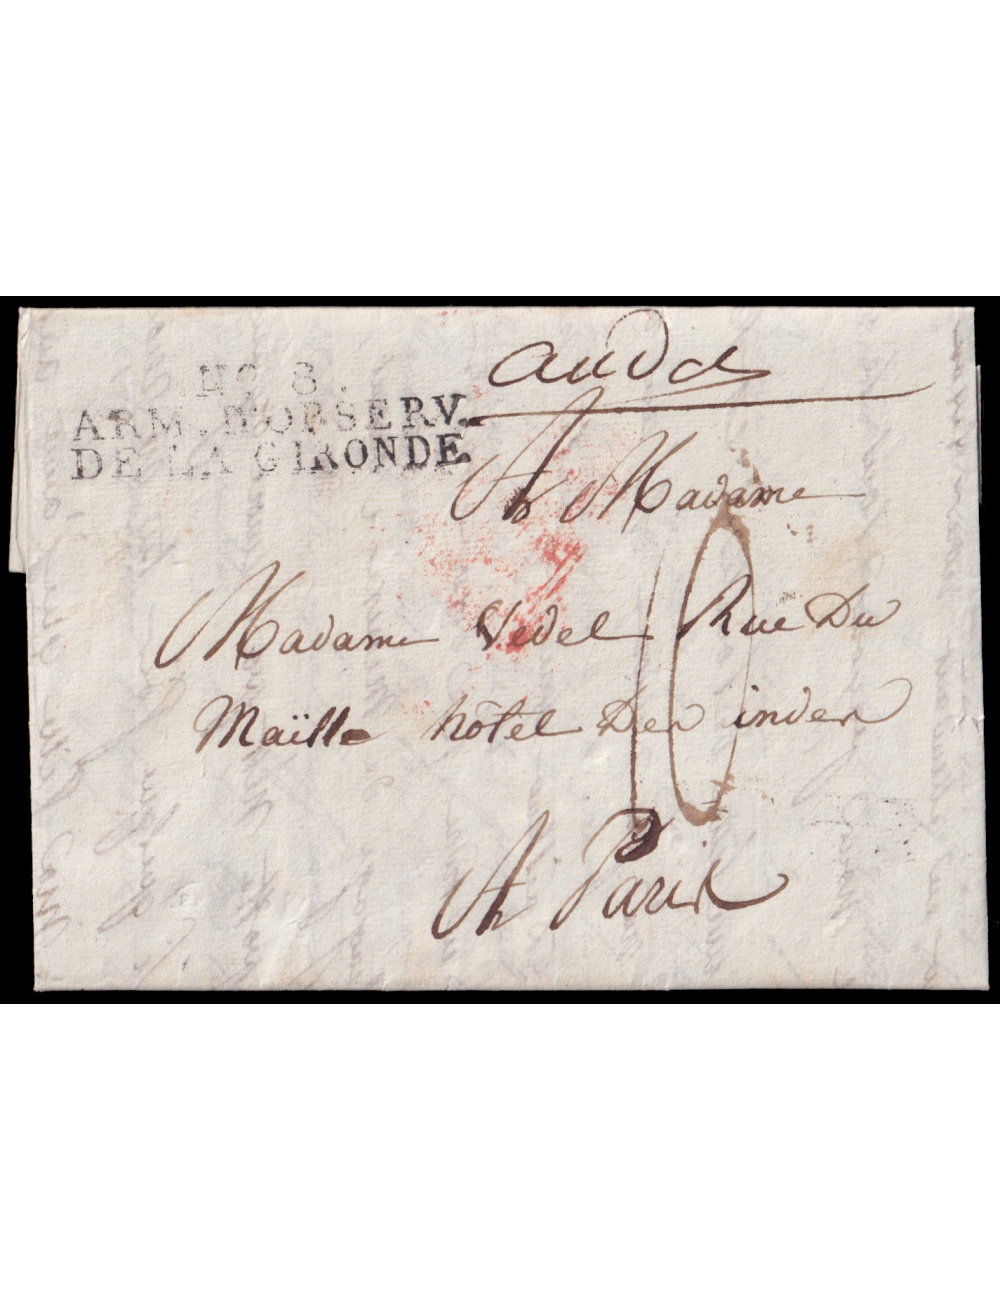 NO. 8.
ARM. D'OBSERV.
DE LA GIRONDE.
A Madame
Madame Vedel Rue Du
Maille hôtel Des indes
10
A Paris